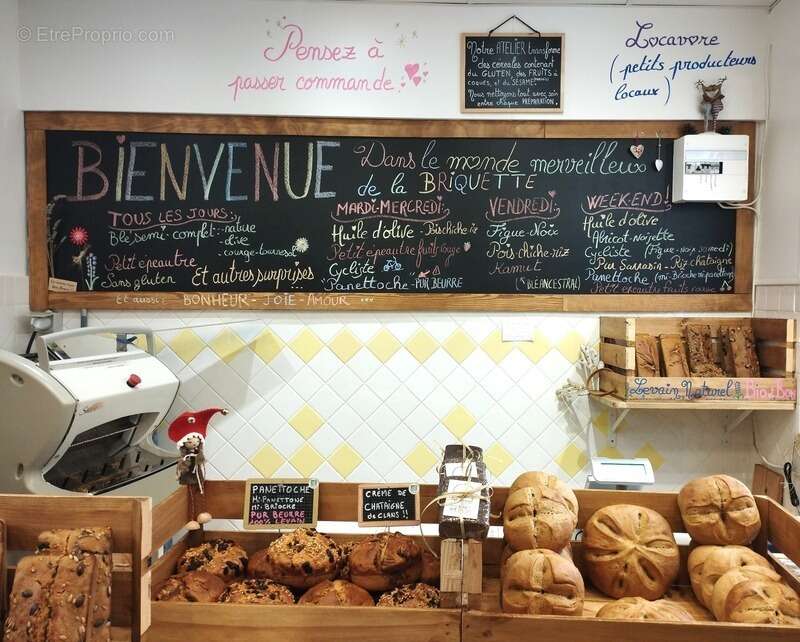 © EtreProprio.com
Pensez à
passer commande
Notre ATELIER transforme
des céréales contenant
du GLUTEN, des FRUITS à
coques, et du SÉSAME
Nous nettoyons tout avec soin
entre chaque PRÉPARATION
Locavore
(petits producteurs
locaux)
BIENVENUE
Dans le monde merveilleux
de la BRIQUETTE
TOUS LES JOURS:
Blé semi-complet: nature
olive
courge-tournesol
Petit épeautre
Sans gluten
Et autres surprises
Et aussi: BONHEUR - JOIE - AMOUR
MARDI-MERCREDI:
Huile d'olive - Bischiche-riz
Petit épeautre fruits rouge
Cycliste
Panettoche - PUR BEURRE
VENDREDI:
Figue-Noix
Pois chiche-riz
Kamut
(BLÉ ANCESTRAL)
WEEK-END!
Huile d'olive
Abricot-Noisette
Cycliste (Figue-Noix samedi)
Pur Sarrasin - Riz châtaigne
Panettoche (mi-Brioche mi-panettone)
Petit épeautre fruits rouge
Levain Naturel Bio & Bon
PANETTOCHE
MI-PANETTONE
MI-BRIOCHE
PUR BEURRE
100% LEVAIN
CRÈME DE
CHATAIGNE
de CLANS !!